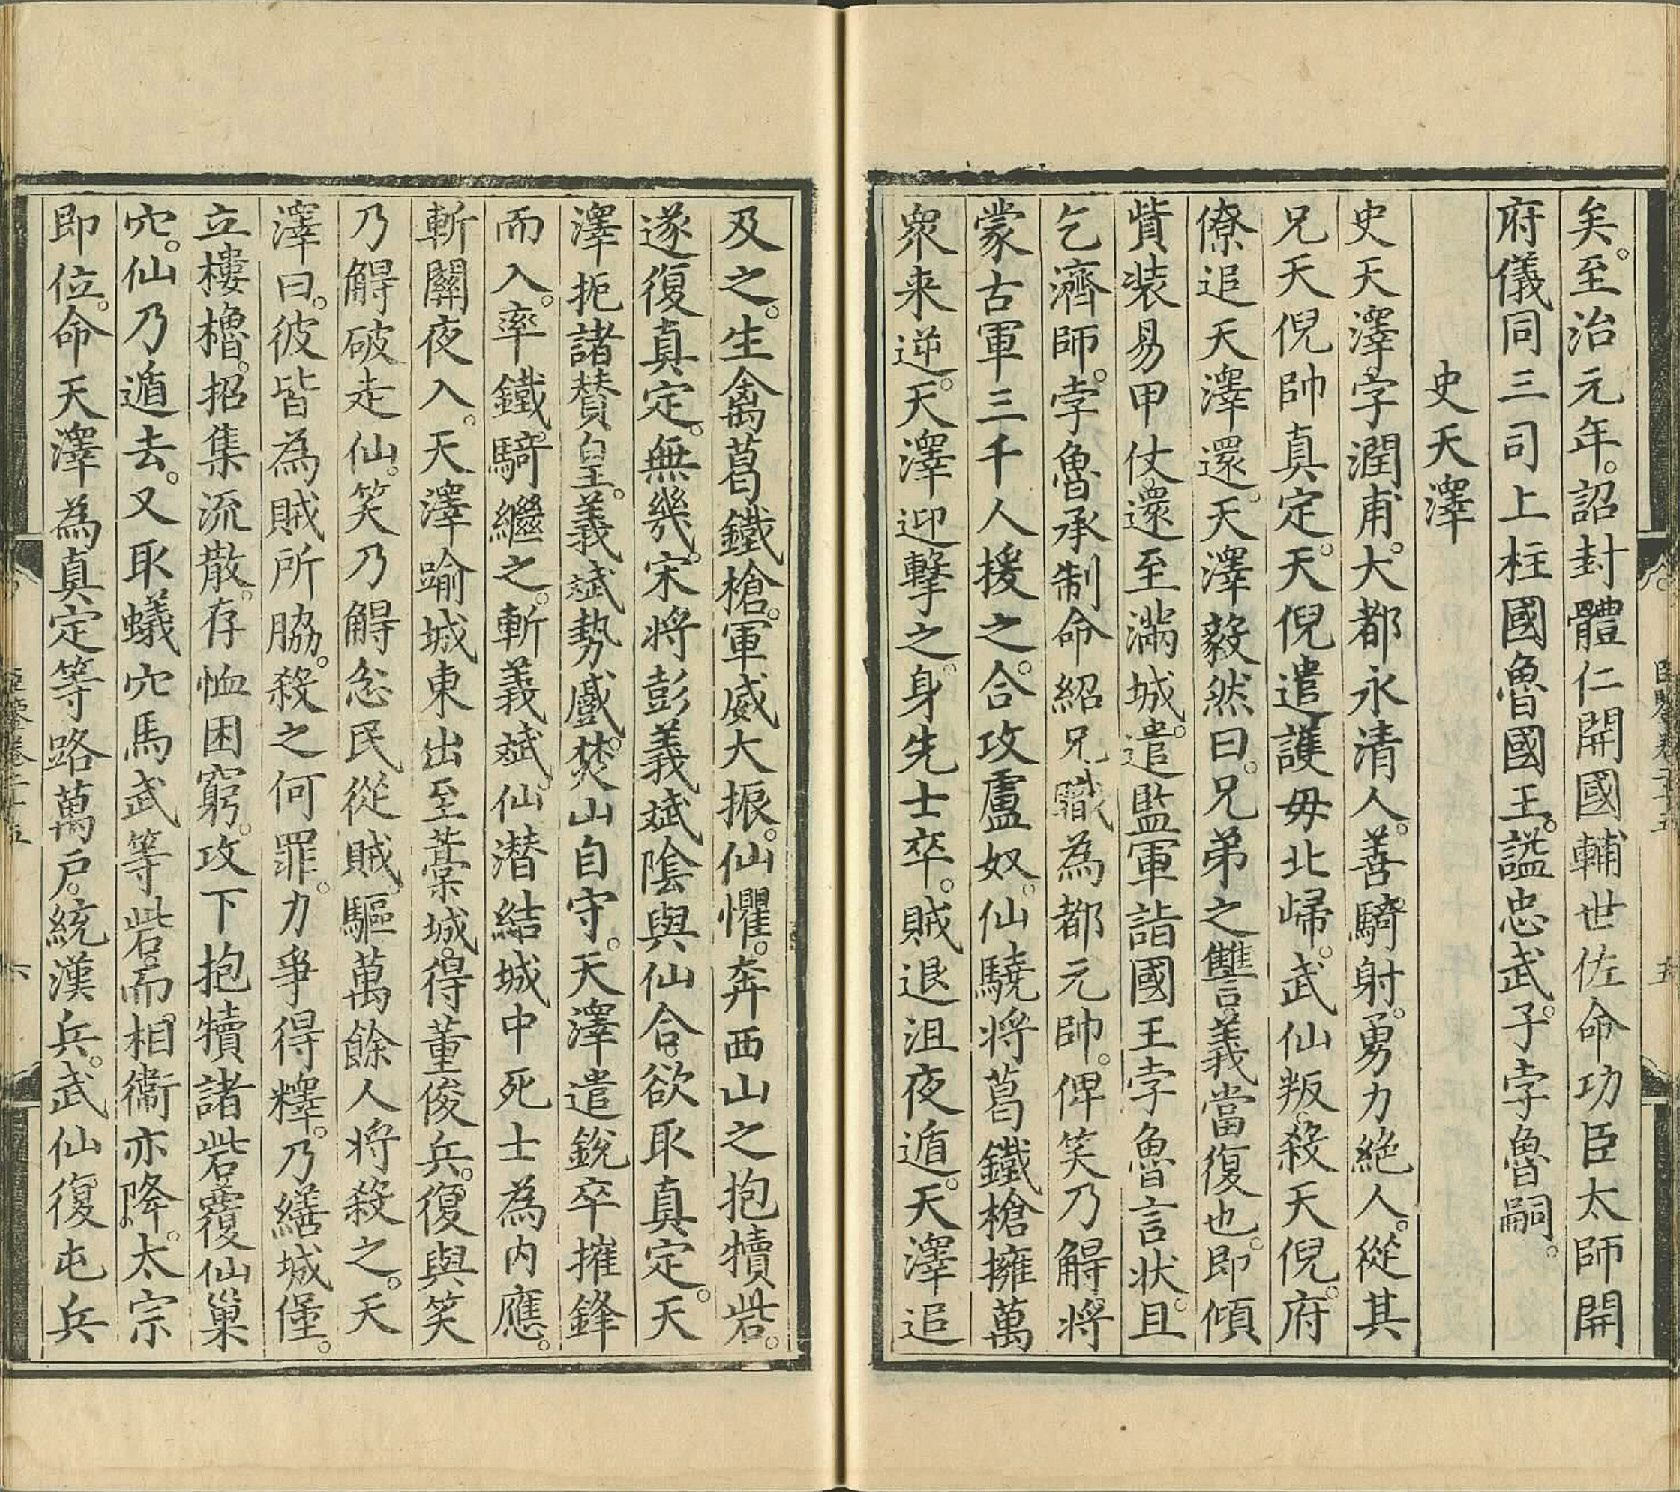 矣。至治元年。詔封體仁開國輔世佐命功臣太師開
府儀同三司上柱國魯國王。謚忠武。子孛魯嗣。
史天澤
史天澤。字潤甫。大都永清人。善騎射。勇力絶人。從其
兄天倪帥真定。天倪遣護毋北歸。武仙叛。殺天倪。府
僚追天澤還。天澤毅然曰。兄弟之讐。義當復也。即傾
貲装易甲仗。還至滿城。遣監軍詣國王孛魯言状。且
乞濟師。孛魯承制命紹兄職為都元帥。俾笑乃䚟将
蒙古軍三千人援之。合攻盧奴。仙驍将葛鐵槍擁萬
衆来逆。天澤迎擊之。身先士卒。賊退沮夜遁。天澤追
及之。生禽葛鐵槍。軍威大振。仙懼。奔西山之抱犢砦。
遂復真定。無幾。宋将彭義斌陰與仙合。欲取真定。天
澤扼諸賛皇。義斌勢蹙。焚山自守。天澤遣銳卒摧鋒
而入。率鐵騎繼之。斬義斌。仙潜結城中死士為内應。
斬關夜入。天澤踰城東出至藁城。得董俊兵。復與笑
乃䚟破走仙。笑乃䚟忿民從賊。驅萬餘人将殺之。天
澤曰。彼皆為賊所脇。殺之何罪。力爭得釋。乃繕城僅。
立樓櫓。招集流散。存恤困窮。攻下抱犢諸砦。覆仙巢
穴。仙乃遁去。又取蟻穴馬武等砦。而相衞亦降。太宗
即位。命天澤為真定等路萬户。統漢兵。武仙復屯兵
六
五